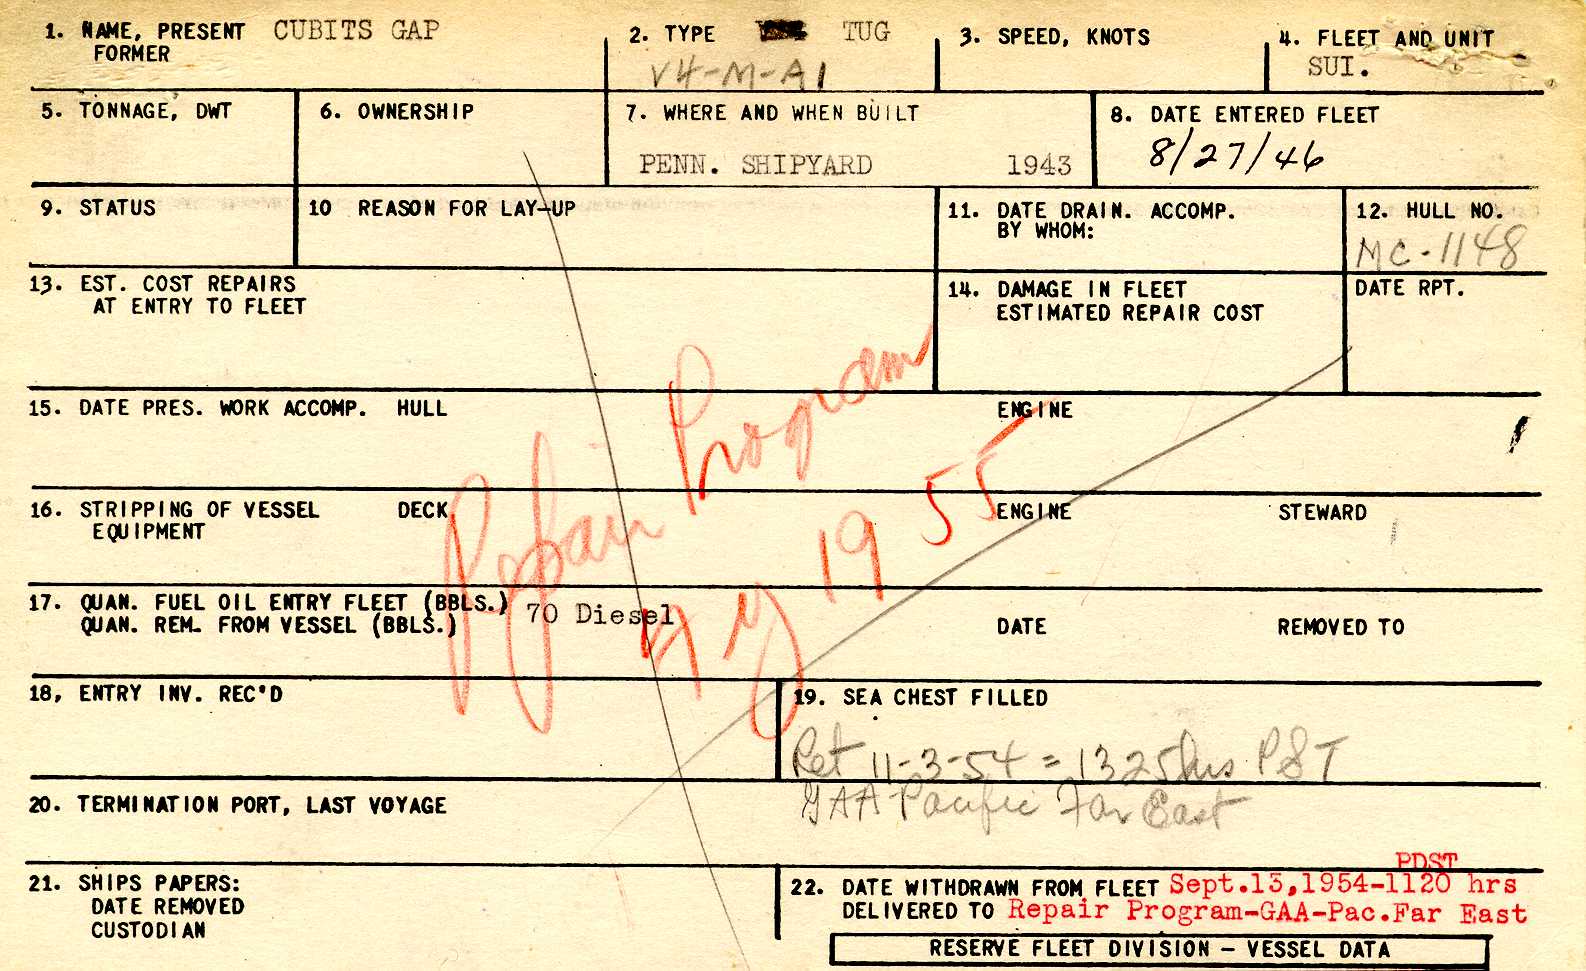 1. NAME, PRESENT CUBITS GAP
FORMER
2. TYPE TUG
V4-M-A1
3. SPEED, KNOTS
4. FLEET AND UNIT
SUI.
5. TONNAGE, DWT
6. OWNERSHIP
7. WHERE AND WHEN BUILT
PENN. SHIPYARD 1943
8. DATE ENTERED FLEET
8/27/46
9. STATUS
10 REASON FOR LAY-UP
11. DATE DRAIN. ACCOMP.
BY WHOM:
12. HULL NO.
MC-1148
13. EST. COST REPAIRS
AT ENTRY TO FLEET
14. DAMAGE IN FLEET
ESTIMATED REPAIR COST
DATE RPT.
15. DATE PRES. WORK ACCOMP. HULL ENGINE
Repair Program
FY 1955
16. STRIPPING OF VESSEL DECK ENGINE STEWARD
EQUIPMENT
17. QUAN. FUEL OIL ENTRY FLEET (BBLS.) 70 Diesel
QUAN. REM. FROM VESSEL (BBLS.) DATE REMOVED TO
18, ENTRY INV. REC'D
19. SEA CHEST FILLED
Ret 11-3-54 = 1325hrs PST
GAA Pacific Far East
20. TERMINATION PORT, LAST VOYAGE
21. SHIPS PAPERS:
DATE REMOVED
CUSTODIAN
PDST
22. DATE WITHDRAWN FROM FLEET Sept.13,1954-1120 hrs
DELIVERED TO Repair Program-GAA-Pac.Far East
RESERVE FLEET DIVISION - VESSEL DATA